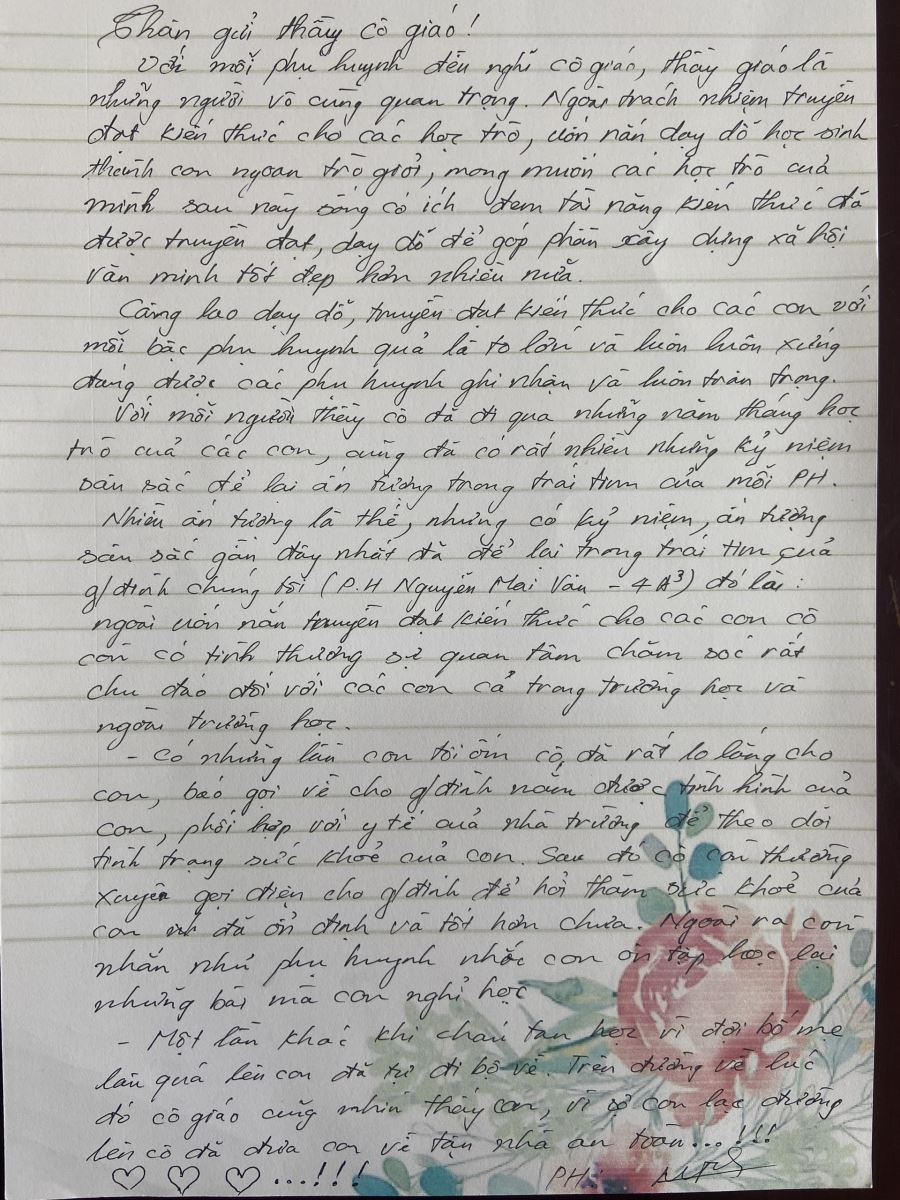 Thân gửi thầy cô giáo!
Với mỗi phụ huynh đều nghĩ cô giáo, thầy giáo là
những người vô cùng quan trọng. Ngoài trách nhiệm truyền
đạt kiến thức cho các học trò, uốn nắn dạy dỗ học sinh
thành con ngoan trò giỏi, mong muốn các học trò của
mình sau này sống có ích đem tài năng kiến thức đã
được truyền đạt, dạy dỗ để góp phần xây dựng xã hội
văn minh tốt đẹp hơn nhiều nữa.
Công lao dạy dỗ, truyền đạt kiến thức cho các con với
mỗi bậc phụ huynh quả là to lớn và luôn luôn xứng
đáng được các phụ huynh ghi nhận và luôn trân trọng.
Với mỗi người thầy cô đã đi qua những năm tháng học
trò của các con, cũng đã có rất nhiều những kỷ niệm
sâu sắc để lại ấn tượng trong trái tim của mỗi PH.
Nhiều ấn tượng là thế, nhưng có kỷ niệm, ấn tượng
sâu sắc gần đây nhất đã để lại trong trái tim của
g/đình chúng tôi (P.H Nguyễn Mai Vân - 4A3) đó là:
ngoài uốn nắn truyền đạt kiến thức cho các con cô
còn có tình thương sự quan tâm chăm sóc rất
chu đáo đối với các con cả trong trường học và
ngoài trường học.
- Có những lần con tôi ốm cô, đã rất lo lắng cho
con, báo gọi về cho g/đình nắm được tình hình của
con, phối hợp với y tế của nhà trường để theo dõi
tình trạng sức khoẻ của con. Sau đó cô còn thường
xuyên gọi điện cho g/đình để hỏi thăm sức khoẻ của
con đã ổn định và tốt hơn chưa. Ngoài ra còn
nhắn nhủ phụ huynh nhắc con ôn tập học lại
những bài mà con nghỉ học
- Một lần khác khi cháu tan học vì đợi bố mẹ
lâu quá lên con đã tự đi bộ về. Trên đường về lúc
đó cô giáo cũng nhìn thấy con, vì sợ con lạc đường
lên cô đã đưa con về tận nhà an toàn...!!!
♡ ♡ ♡ ...!!! PH: